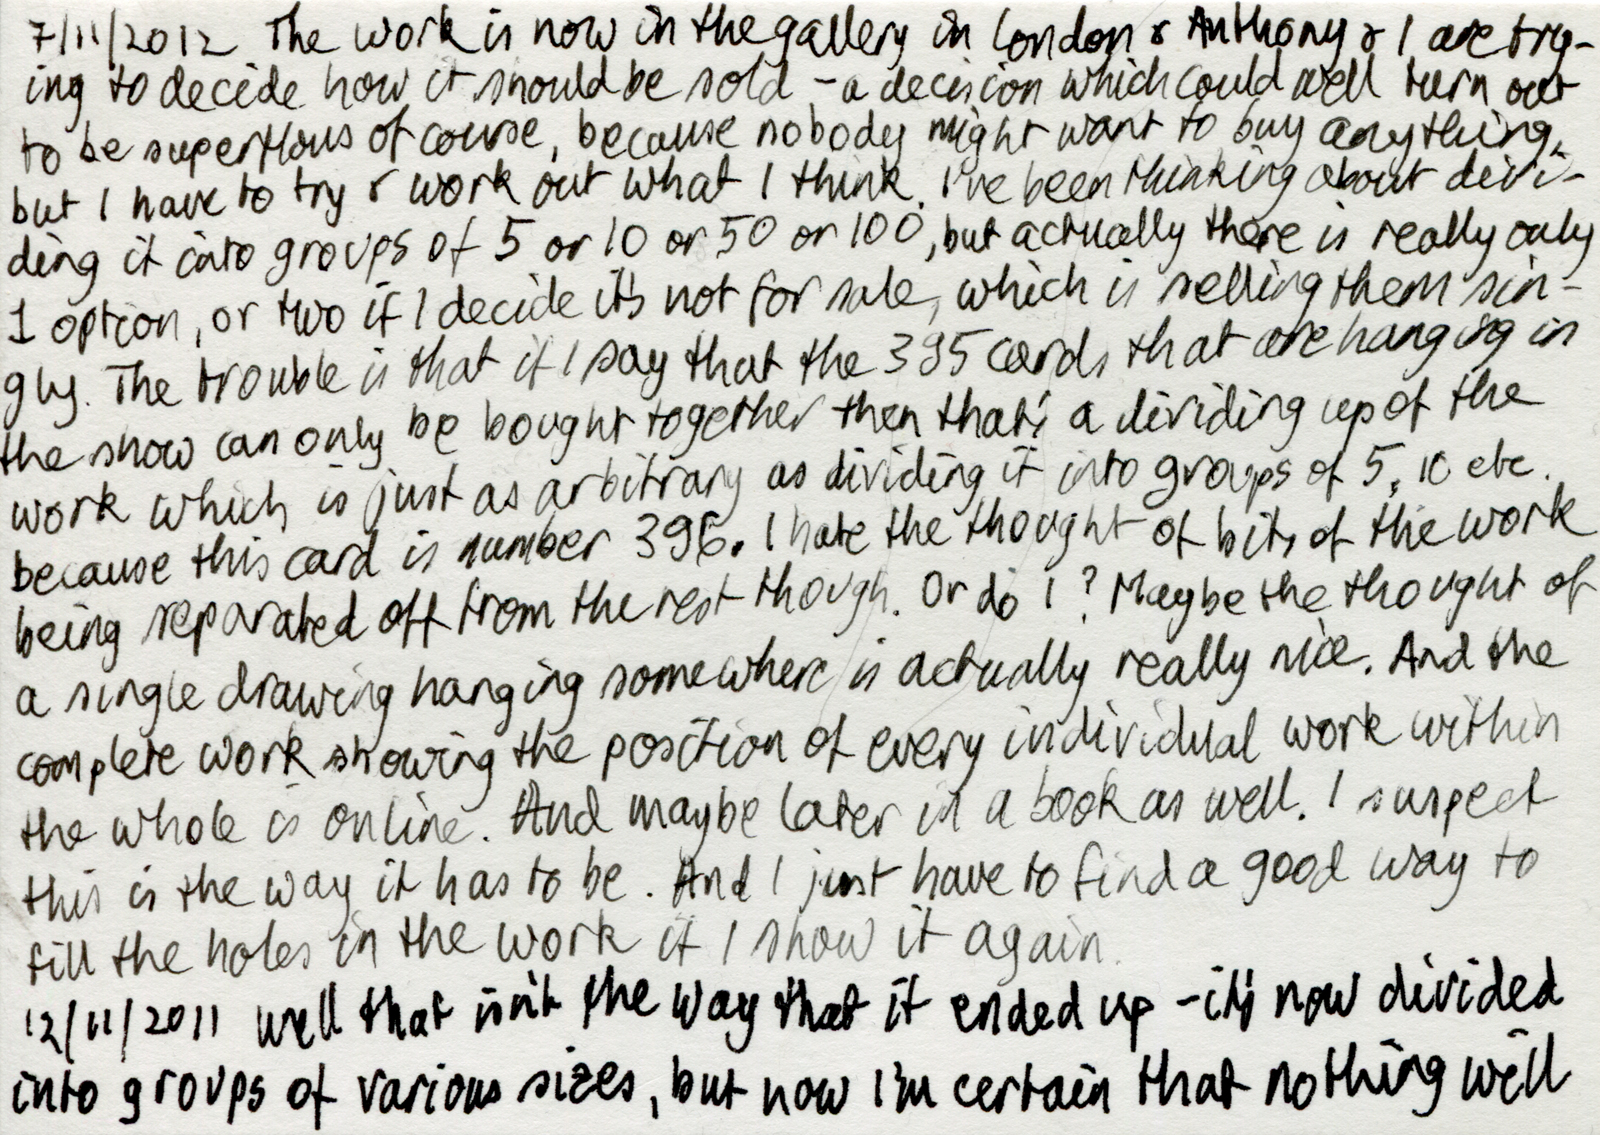 7/11/2012 The work is now in the gallery in London & Anthony & I are try-
ing to decide how it should be sold – a decision which could well turn out
to be superflous of course, because nobody might want to buy anything,
but I have to try & work out what I think. I've been thinking about divi-
ding it into groups of 5 or 10 or 50 or 100, but actually there is really only
1 option, or two if I decide it's not for sale, which is selling them sin-
gly. The trouble is that if I say that the 395 cards that are hanging in
the show can only be bought together then that's a dividing up of the
work which is just as arbitrary as dividing it into groups of 5, 10 etc.
because this card is number 396. I hate the thought of bits of the work
being separated off from the rest though. Or do I? Maybe the thought of
a single drawing hanging somewhere is actually really nice. And the
complete work showing the position of every individual work within
the whole is online. And maybe later in a book as well. I suspect
this is the way it has to be. And I just have to find a good way to
fill the holes in the work if I show it again.
12/11/2011 Well that isn't the way that it ended up – it's now divided
into groups of various sizes, but now I'm certain that nothing will